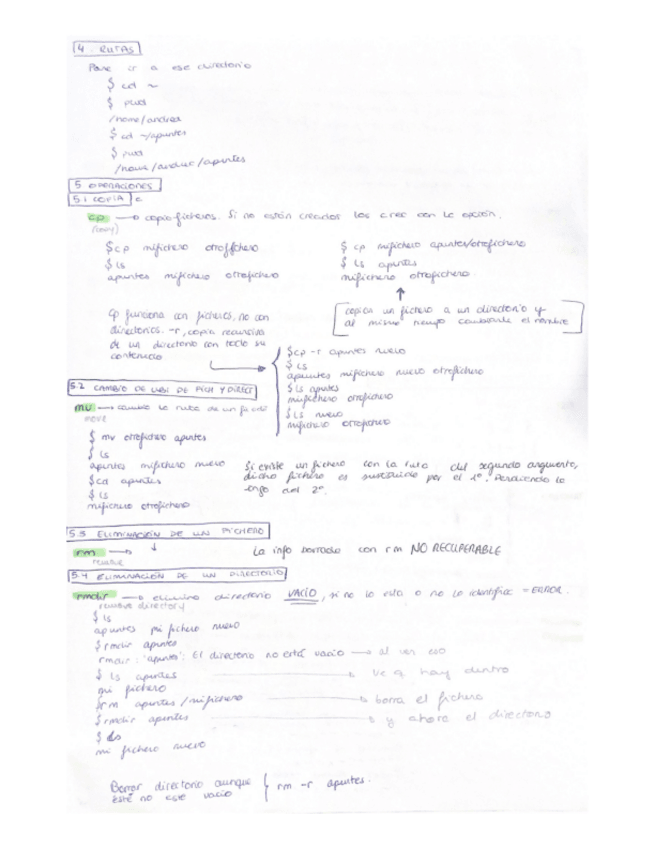 4. RUTAS
Para ir a ese directorio
$ cd ~
$ pwd
/home/andrea
$ cd ~/apuntes
$ pwd
/home/andrea/apuntes
5 OPERACIONES
5.1 COPIA
cp → copia ficheros. Si no están creados los crea con la opción.
(copy)
$cp mifichero otrofichero
$ ls
apuntes mifichero otrofichero
$ cp mifichero apuntes/otrofichero
$ ls apuntes
mifichero otrofichero
copia un fichero a un directorio y
al mismo tiempo cambiarle el nombre
cp funciona con ficheros, no con
directorios. -r, copia recursiva
de un directorio con todo su
contenido
$cp -r apuntes nuevo
$ ls
apuntes mifichero nuevo otrofichero
$ ls apuntes
mifichero otrofichero
$ ls nuevo
mifichero otrofichero
5.2 CAMBIO DE UBI DE FICH Y DIRECT
mv → cambia la ruta de un fichero
move
$ mv otrofichero apuntes
$ ls
apuntes mifichero nuevo
$cd apuntes
$ ls
mifichero otrofichero
Si existe un fichero con la ruta del segundo argumento,
dicho fichero es sustituido por el 1º. Perdiendo la
del 2º.
5.3 ELIMINACIÓN DE UN FICHERO
rm →
remove
La info borrada con rm NO RECUPERABLE
5.4 ELIMINACIÓN DE UN DIRECTORIO
rmdir → elimina directorio VACÍO, si no lo esta o no lo identifica = ERROR.
remove directory
$ ls
apuntes mi fichero nuevo
$ rmdir apuntes
rmdir: 'apuntes': El directorio no está vacio → al ver eso
$ ls apuntes → ve q hay dentro
mi fichero
$rm apuntes/mifichero → borra el fichero
$ rmdir apuntes → y ahora el directorio
$ ls
mi fichero nuevo
Borrar directorio aunque
éste no esté vacío
rm -r apuntes.